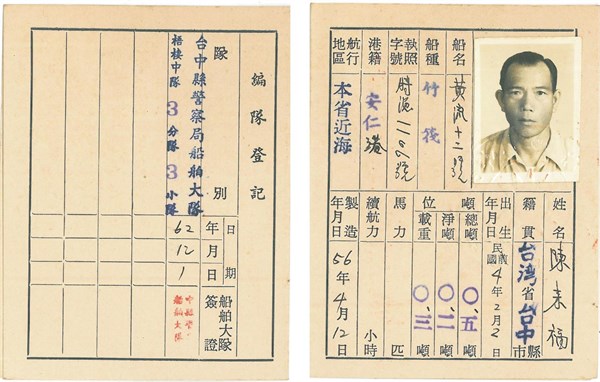 船名 黃流十二號
船種 竹筏
執照字號 號
港籍 安仁港
航行地區 本省近海
姓名 陳来福
籍貫 台灣省台中縣市
出生年月日 民前國4年2月2日
噸位
總噸 〇.五噸
淨噸 〇.二噸
載重 〇.三噸
馬力 匹
續航力 小時
製造年月日 56年4月12日
編隊登記
隊別
台中縣警察局船舶大隊
梧棲中隊3分隊3小隊
日期
年月日
62 12 1
船舶大隊簽證
船舶大隊